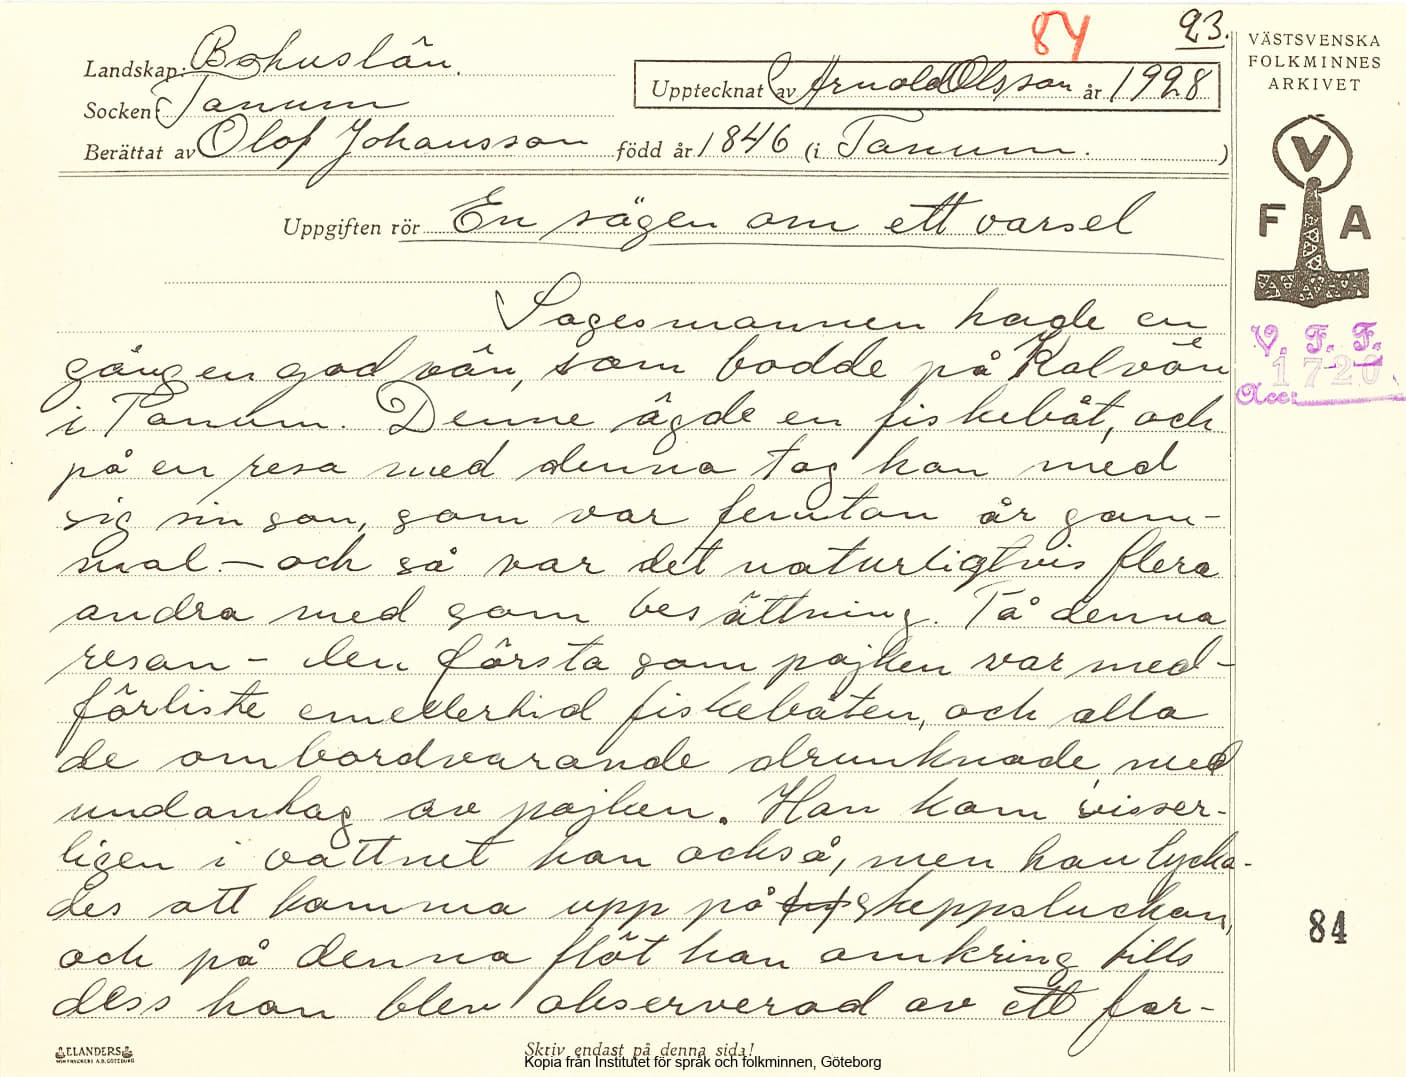 84
93.
Landskap: Bohuslän.
Upptecknat av Arnold Olsson år 1928
Socken: Tanum
Berättat av Olof Johansson född år 1846 (i Tanum. )
Uppgiften rör En sägen om ett varsel
Sagesmannen hade en
gång en god vän, som bodde på Kalvön
i Tanum. Denne ägde en fiskebåt, och
på en resa med denna tog han med
sig sin son, som var femton år gam-
mal. – och så var det naturligtvis flera
andra med som besättning. På denna
resan – den första som pojken var med –
förliste emellertid fiskebåten, och alla
de ombordvarande drunknade med
undantag av pojken. Han kom visser-
ligen i vattnet han också, men han lycka-
des att komma upp på skeppsluckan,
och på denna flöt han omkring tills
dess han blev observerad av ett far-
ELANDERS
Skriv endast på denna sida!
Kopia från Institutet för språk och folkminnen, Göteborg
VÄSTSVENSKA
FOLKMINNES
ARKIVET
V
F A
V. F. F.
1720
Acc:
84